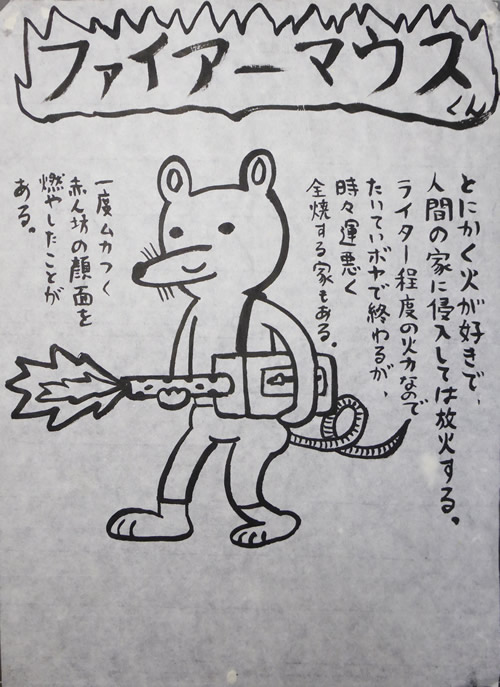 ファイアーマウス
くん
とにかく火が好きで、
人間の家に侵入しては放火する。
ライター程度の火力なので
たいていボヤで終わるが、
時々運悪く
全焼する家もある。
一度ムカつく
赤ん坊の顔面を
燃やしたことが
ある。